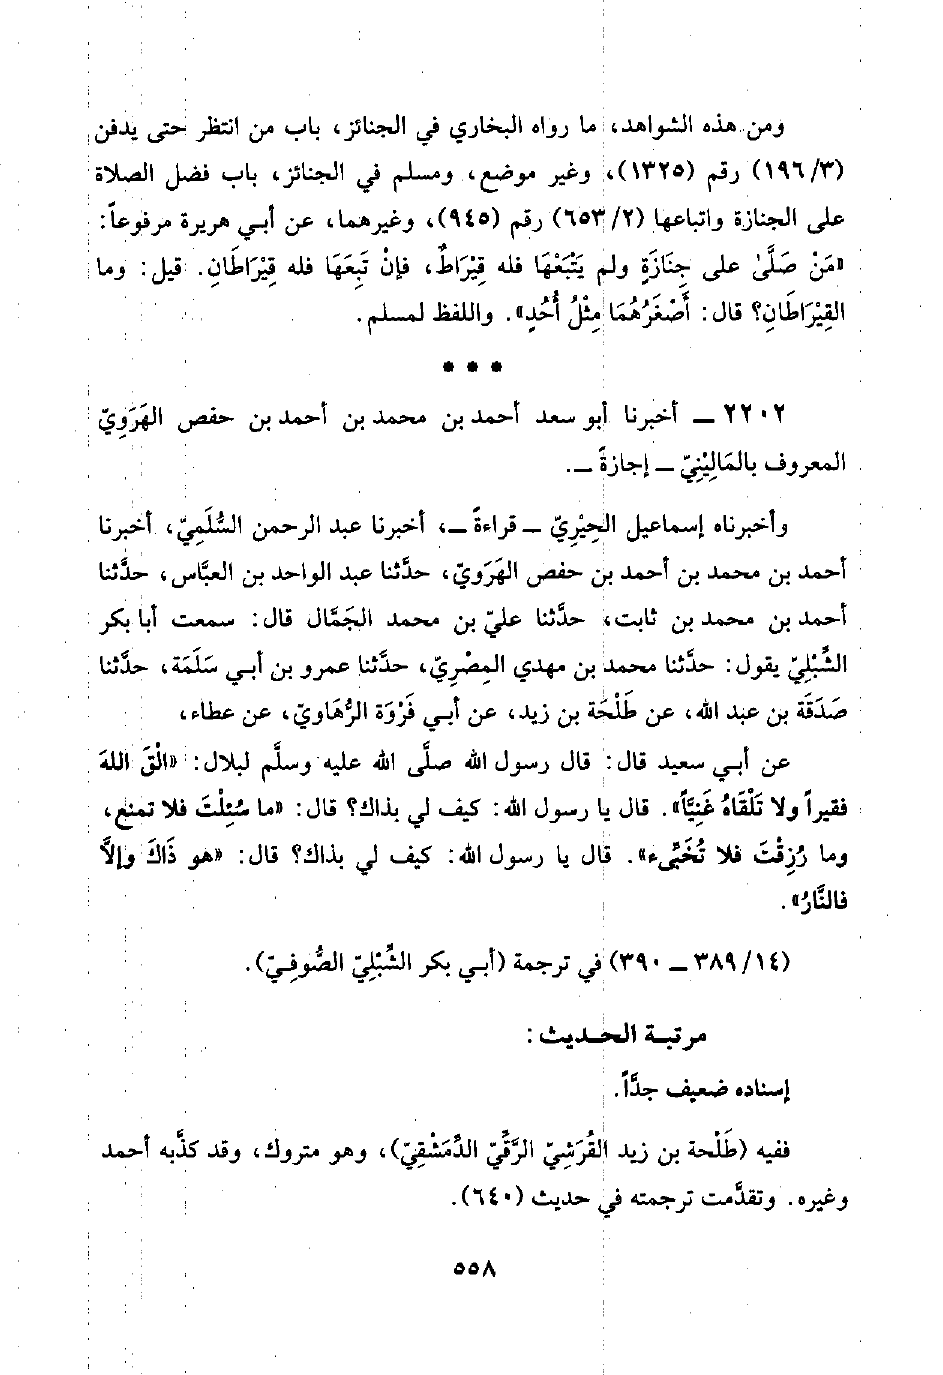 ومن هذه الشواهد، ما رواه البخاري في الجنائز، باب من انتظر حتى يدفن
(١٩٦/٣) رقم (١٣٢٥)، وغير موضع، ومسلم في الجنائز، باب فضل الصلاة
على الجنازة واتباعها (٦٥٣/٢) رقم (٩٤٥)، وغيرهما، عن أبي هريرة مرفوعاً:
«مَنْ صَلَّىٰ على جِنَازَةٍ ولم يَتْبَعْهَا فله قِيْرَاطٌ، فإنْ تَبِعَهَا فله قِيْرَاطَانِ. قيل: وما
القِيْرَاطَانِ؟ قال: أَصْغَرُهُمَا مِثْلُ أُحُدٍ». واللفظ لمسلم.
* * *
٢٢٠٢ ــ أخبرنا أبو سعد أحمد بن محمد بن أحمد بن حفص الهَرَوِيّ
المعروف بالمَالِيْنِيّ ــ إجازةً ــ.
وأخبرناه إسماعيل الحِيْرِيّ ــ قراءةً ــ، أخبرنا عبد الرحمن السُّلَمِيّ، أخبرنا
أحمد بن محمد بن أحمد بن حفص الهَرَوِيّ، حدَّثنا عبد الواحد بن العبَّاس، حدَّثنا
أحمد بن محمد بن ثابت، حدَّثنا عليّ بن محمد الجَمَّال قال: سمعت أبا بكر
الشِّبْلِيّ يقول: حدَّثنا محمد بن مهدي المِصْرِيّ، حدَّثنا عمرو بن أبي سَلَمَة، حدَّثنا
صَدَقَة بن عبد الله، عن طَلْحَة بن زيد، عن أبي فَرْوَة الرُّهَاويّ، عن عطاء،
عن أبي سعيد قال: قال رسول الله صلَّى الله عليه وسلَّم لبلال: «الْقَ اللهَ
فقيراً ولا تَلْقَاهُ غَنِيَّاً». قال يا رسول الله: كيف لي بذاك؟ قال: «ما سُئِلْتَ فلا تمنع،
وما رُزِقْتَ فلا تُخَبِّىء». قال يا رسول الله: كيف لي بذاك؟ قال: «هو ذَاكَ وإلَّا
فالنَّارُ».
(٣٨٩/١٤ ــ ٣٩٠) في ترجمة (أبي بكر الشِّبْلِيّ الصُّوفيّ).
مرتبة الحديث:
إسناده ضعيف جدَّاً.
ففيه (طَلْحة بن زيد القُرَشِيّ الرَّقِّيّ الدِّمَشْقِيّ)، وهو متروك، وقد كذَّبه أحمد
وغيره. وتقدَّمت ترجمته في حديث (٦٤٠).
٥٥٨